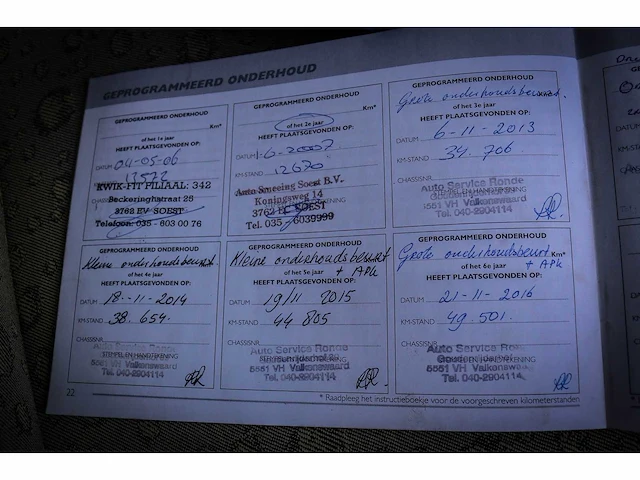 GEPROGRAMMEERD ONDERHOUD
GEPROGRAMMEERD ONDERHOUD
Km*
of het 1e jaar
HEEFT PLAATSGEVONDEN OP:
DATUM 04-05-06
13572
KWIK-FIT FILIAAL: 342
Beckeringhstraat 28
3762 EV SOEST
Telefoon: 035 - 603 00 76
GEPROGRAMMEERD ONDERHOUD
Km*
of het 2e jaar
HEEFT PLAATSGEVONDEN OP:
DATUM
KM-STAND 12670
Auto Smeeing Soest B.V.
Koningsweg 14
3762 SOEST
Tel. 035 - 6039999
GEPROGRAMMEERD ONDERHOUD
Grote onderhoudsbeurt.
of het 3e jaar
HEEFT PLAATSGEVONDEN OP:
DATUM 6-11-2013
KM-STAND 34.706
CHASSISNR.
Auto Service Ronde
5551 VH Valkenswaard
Tel. 040-2904114
GEPROGRAMMEERD ONDERHOUD
Kleine onderhoudsbeurt
of het 4e jaar
HEEFT PLAATSGEVONDEN OP:
DATUM 18-11-2014
KM-STAND 38.654
CHASSISNR.
STEMPEL EN HANDTEKENING
5551 VH Valkenswaard
Tel. 040-2904114
GEPROGRAMMEERD ONDERHOUD
Kleine onderhoudsbeurt
of het 5e jaar + APK
HEEFT PLAATSGEVONDEN OP:
DATUM 19/11 2015
KM-STAND 44 805
CHASSISNR.
Auto Service Ronde
5551 VH Valkenswaard
Tel. 040-2904114
GEPROGRAMMEERD ONDERHOUD
Grote onderhoudsbeurt Km*
of het 6e jaar + APK
HEEFT PLAATSGEVONDEN OP:
DATUM 21-11-2016
KM-STAND 49.501
CHASSISNR.
Auto Service
5551 VH Valkenswaard
Tel. 040-2904114
22
* Raadpleeg het instructieboekje voor de voorgeschreven kilometerstanden